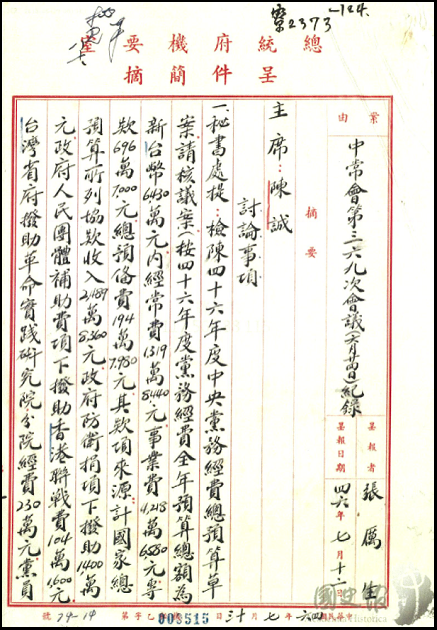 案2373-124.
總統府機要室
呈件簡摘
案由
中常會第三六九次會議(六月廿四日)紀錄
呈報者
張厲生
呈報日期
四六年七月十二日
摘要
主席：陳誠
討論事項
一、秘書處提：檢陳四十六年度中央黨務經費總預算草
案請核議案：按四十六年度黨務經費全年預算總額為
新台幣6430萬元內經常費1319萬8440元事業費4,218
萬6580元專
款696萬7000元總預備費194萬7,980元其款項來源：計國家總
預算所列協款收入2,489萬8360元政府防衛捐項下撥助1400萬
元政府人民團體補助費項下撥助香港聯戰費104萬1,600元
台灣省府撥助革命實踐研究院分院經費230萬元黨員
號79-14
字第
乙
003515
日
月七年六四